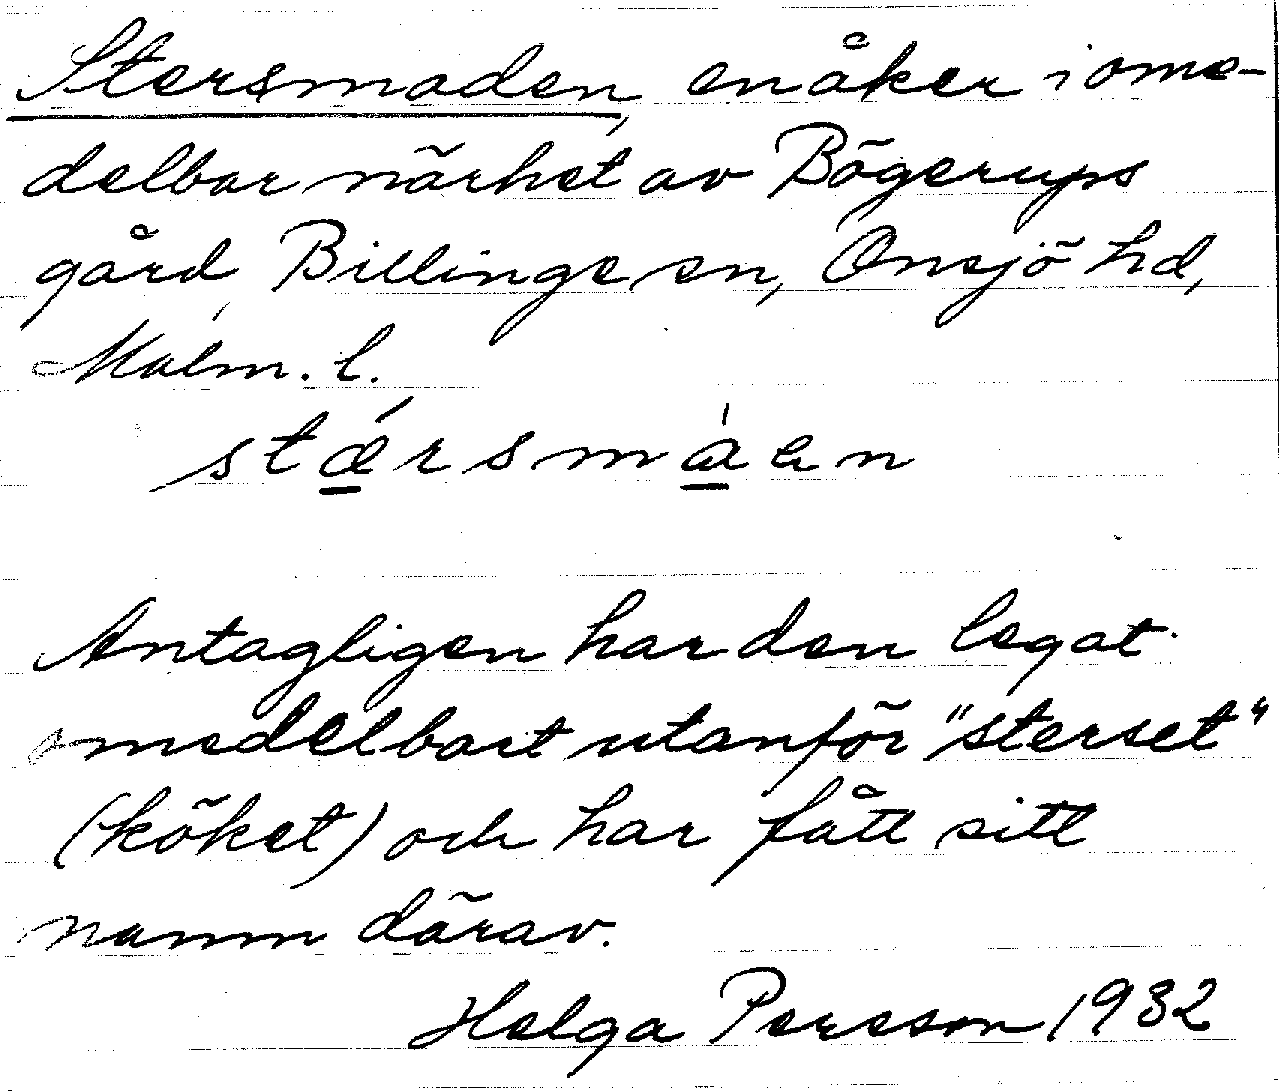 Stersmaden, en åker i ome-
delbar närhet av Bögerups
gård, Billinge sn, Onsjö hd,
Malm. l.
stǽrsmáen
Antagligen har den legat
omedelbart utanför "sterset"
(köket) och har fått sitt
namn därav.
Helga Persson 1932